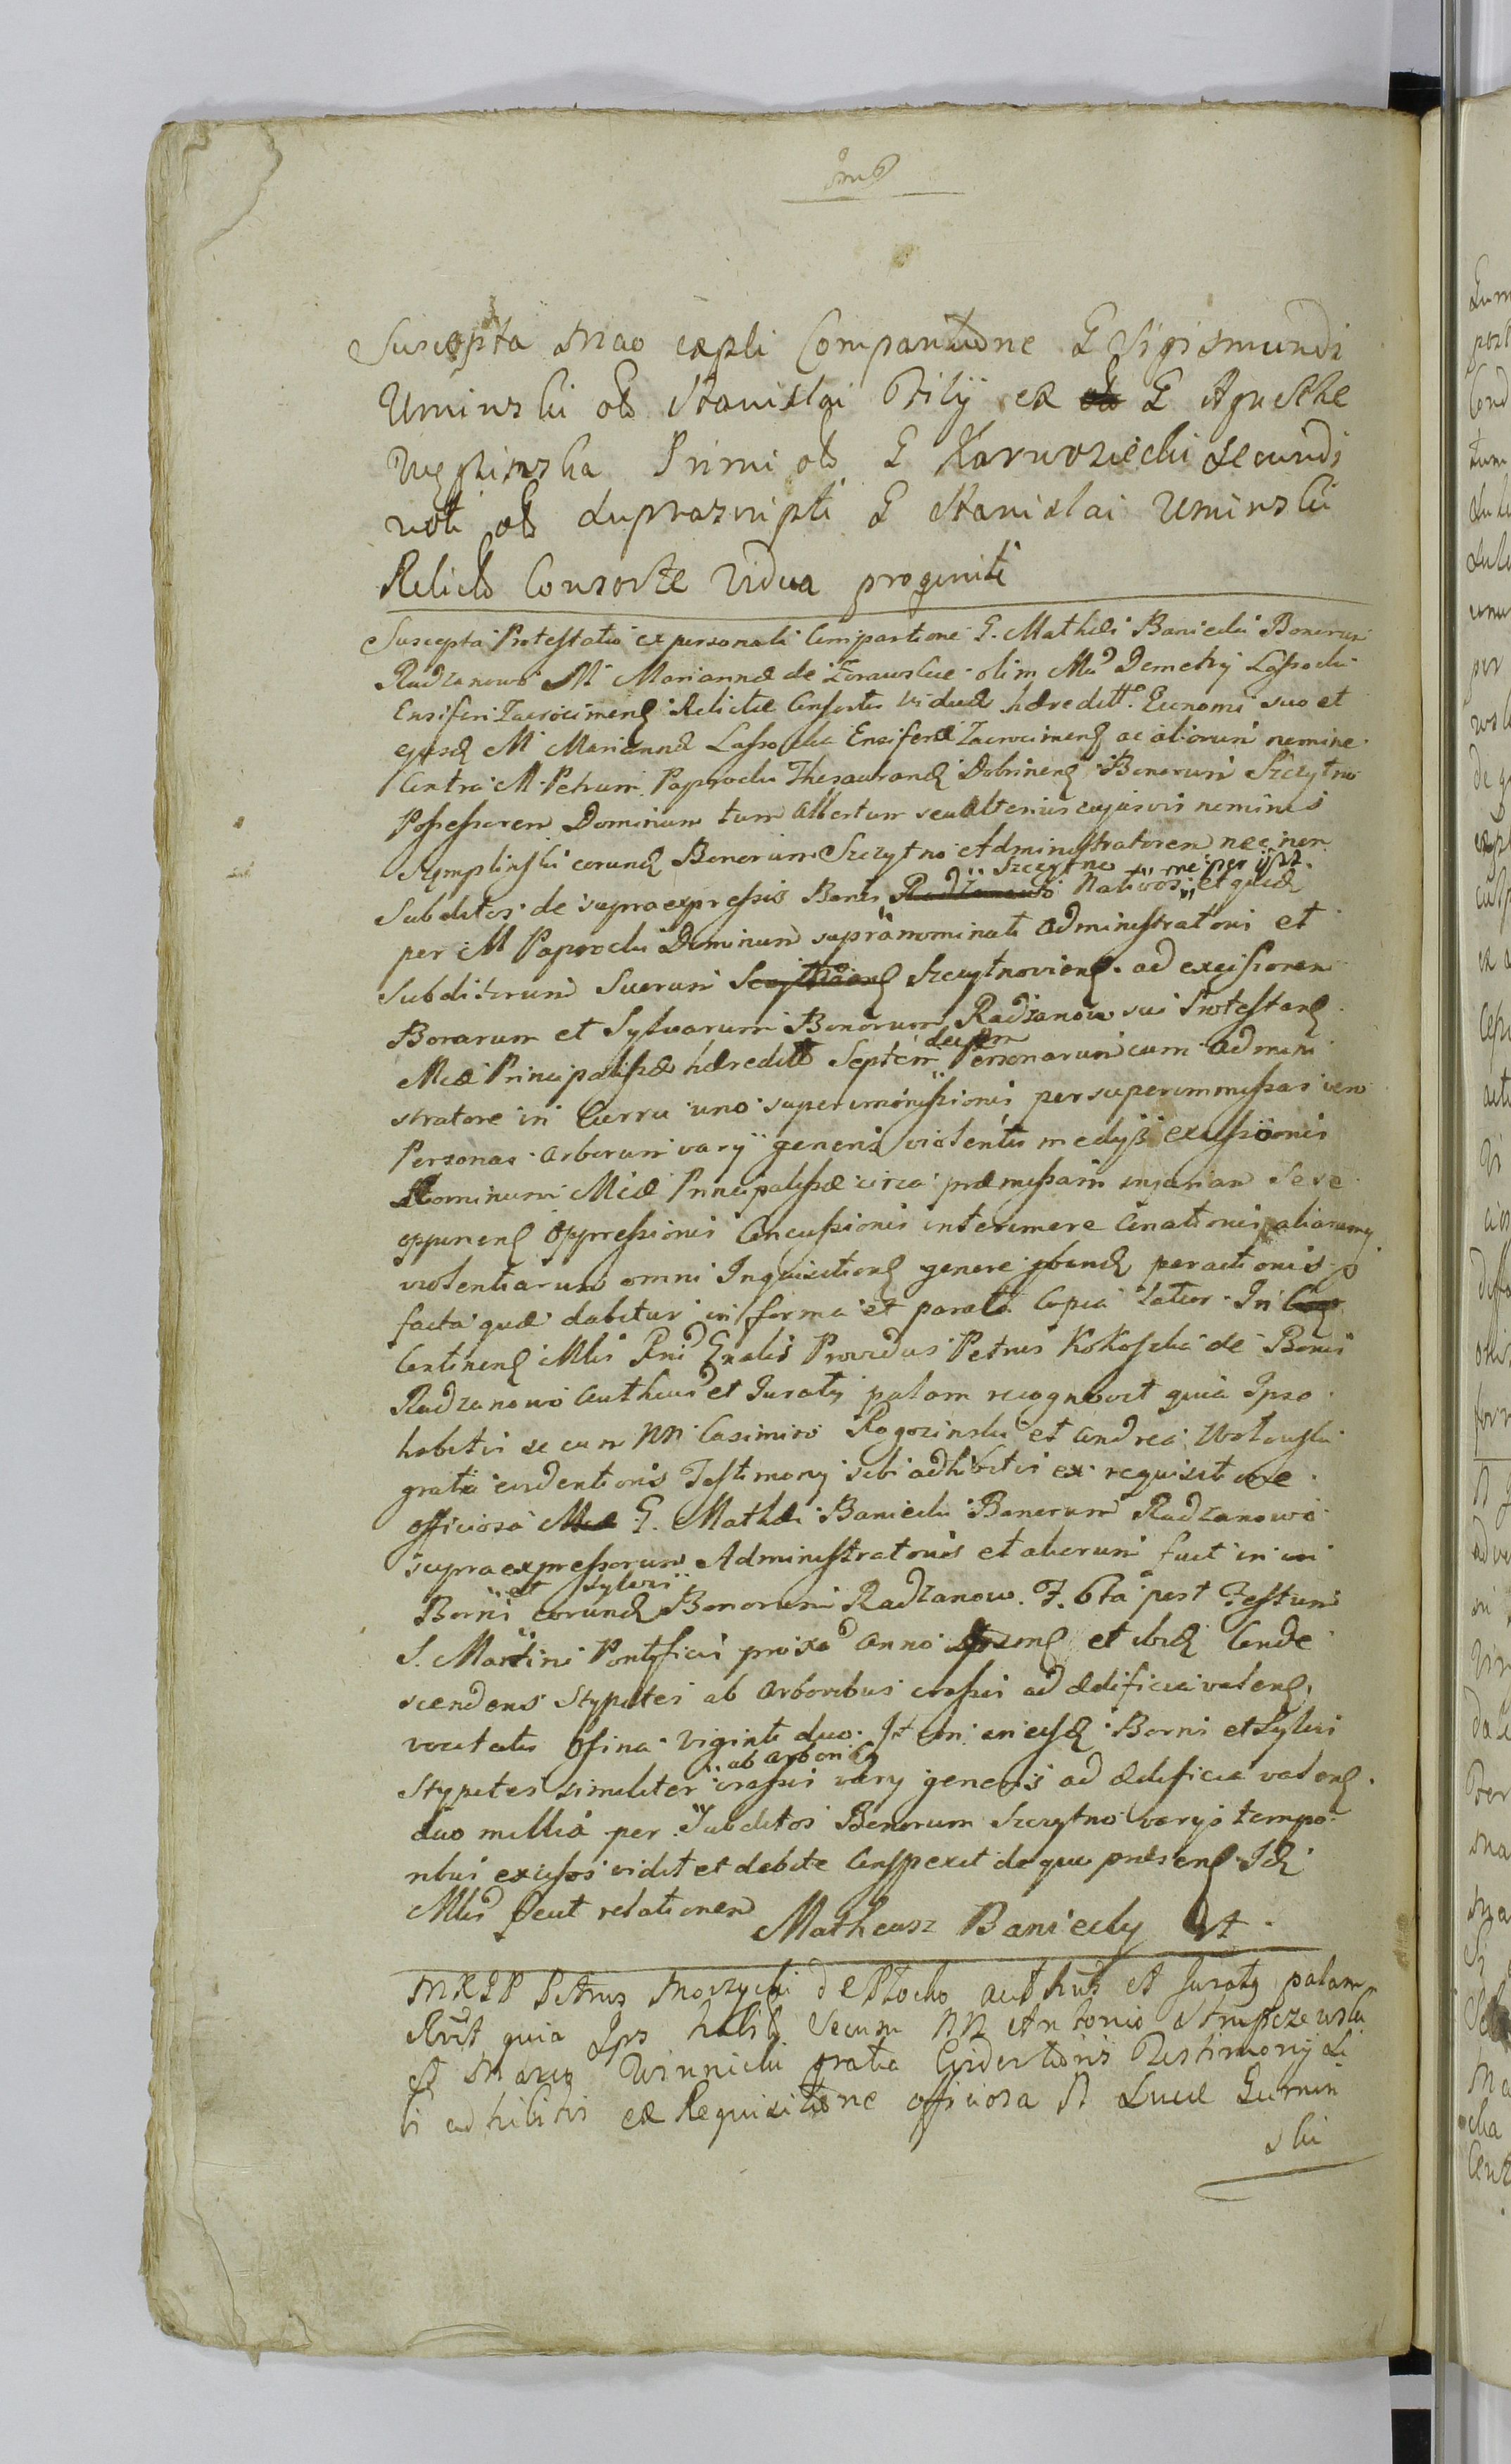 Suscepta Mao expli Comparitione G Sigismundi
Uminski olb Stanislai Filij ex G Agnethe
Węglinska Primi olb G Karwosiecki secundi
voti olb supraszripti G Stanislai Uminski
Relicta Consorte Vidua progeniti
Suscepta Protestatio ex personali Compartione G. Mathei Baniecki Bonorum
Radzanowo M Mariannæ de Zorawskie olim Md Demetry Lassocki
Ensiferi Zacrocimens Relictæ Consortis viduæ hæreditt. Economi suo et
ejusd M Mariannæ Lassocka Ensiferæ Zacrocimens ac aliorum nomine
Contra M Petrum Paprocki Thesaurand Dobrinens Bonorum Szczytno
Possessorem Dominum tum Albertum seu alterius cujusvis nominis
Symplinski eorund Bonorum Szczytno Administratorem nec non
Subditos de supra expressis Bonis Radzanowo Szczytno Nativos et quid
per M Paprocki Dominum supra nominati administratoris et
Subditorum Suorum Szczytnoviens ad excissionem
Borrarum et Sylvarum Bonorum Radzanow sui Protestans
Meæ Principalissæ hæreditt Septem decem Personarum cum admini
stratore in Curru uno superimmissionis per superimmissas vero
Personas arborum varij generis violentis medijs excissionis
Hominum Meæ Principalissæ circa præmissam injuriam sese
opponens oppressionis Concussionis interimere Conationis aliarumq
violentiarum omni Inquisitions genere ibund peractionis
facta quæ dabitur in forma et parata Copia latior In
Continens Mlis Rni Gnalis Providus Petrus Kokoszka de Bonis
Radzanowo authend et Juraty palam recognovit quia Ipso
habitis se cum NN Casimiro Rogozinski et Andrea Wolouski
gratia evidentioris Testimony sibi adhibitis ex requisitione
officiosa G. Mathæi Baniecki Bonorum Radzanowo
supra expressorum Administratoris et aliorum fuit in
Borris et sylvis eorund Bonorum Radzanow F. 6ta post Festum
S. Martini Pontificis proxo anno et ibid Conde
scendens Stypites ab arboribus crassis ad ædificia valens
vocitatis Osina viginti duo. It in eisd Borris et Sylvis
Stypites similiter ab arborib crassis vary generis ad ædificia valens
duo millia per Subditos Bonorum Szczytno varys tempo
ribus excissos vidit et debite Conspexit de quo præsens Id
Mlis fecit relationem
Matheusz Baniecky
MRGP Petrus Moczycki de Plocko authus et Juratg palam
Rvit quia Ips habit secum NN Antonio Strupczewski
et Marco Winnicki gratia Evidentioris Testimonij Si
bi adhibitis ex Requisitione officiosa N Lucæ Gumin
ski